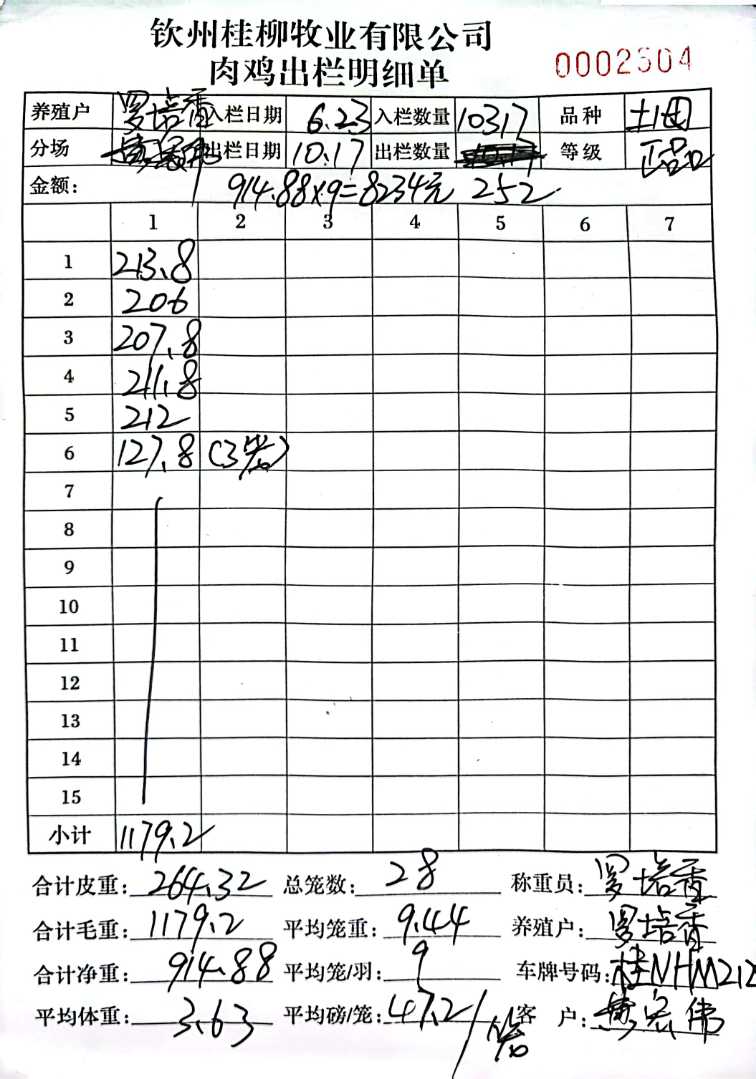 钦州桂柳牧业有限公司
肉鸡出栏明细单 0002504
养殖户 罗培香 入栏日期 6.23 入栏数量 10317 品种 土
分场 出栏日期 10.17 出栏数量 等级 正品
金额: 914.88×9=8234元 252
1 2 3 4 5 6 7
1 213.8
2 206
3 207.8
4 211.8
5 212
6 127.8 (3笼)
7
8
9
10
11
12
13
14
15
小计 1179.2
合计皮重: 264.32 总笼数: 28 称重员: 罗培香
合计毛重: 1179.2 平均笼重: 9.44 养殖户: 罗培香
合计净重: 914.88 平均笼/羽: 9 车牌号码: 桂NHM212
平均体重: 3.63 平均磅/笼: 47.2/笼 客户: 宏伟